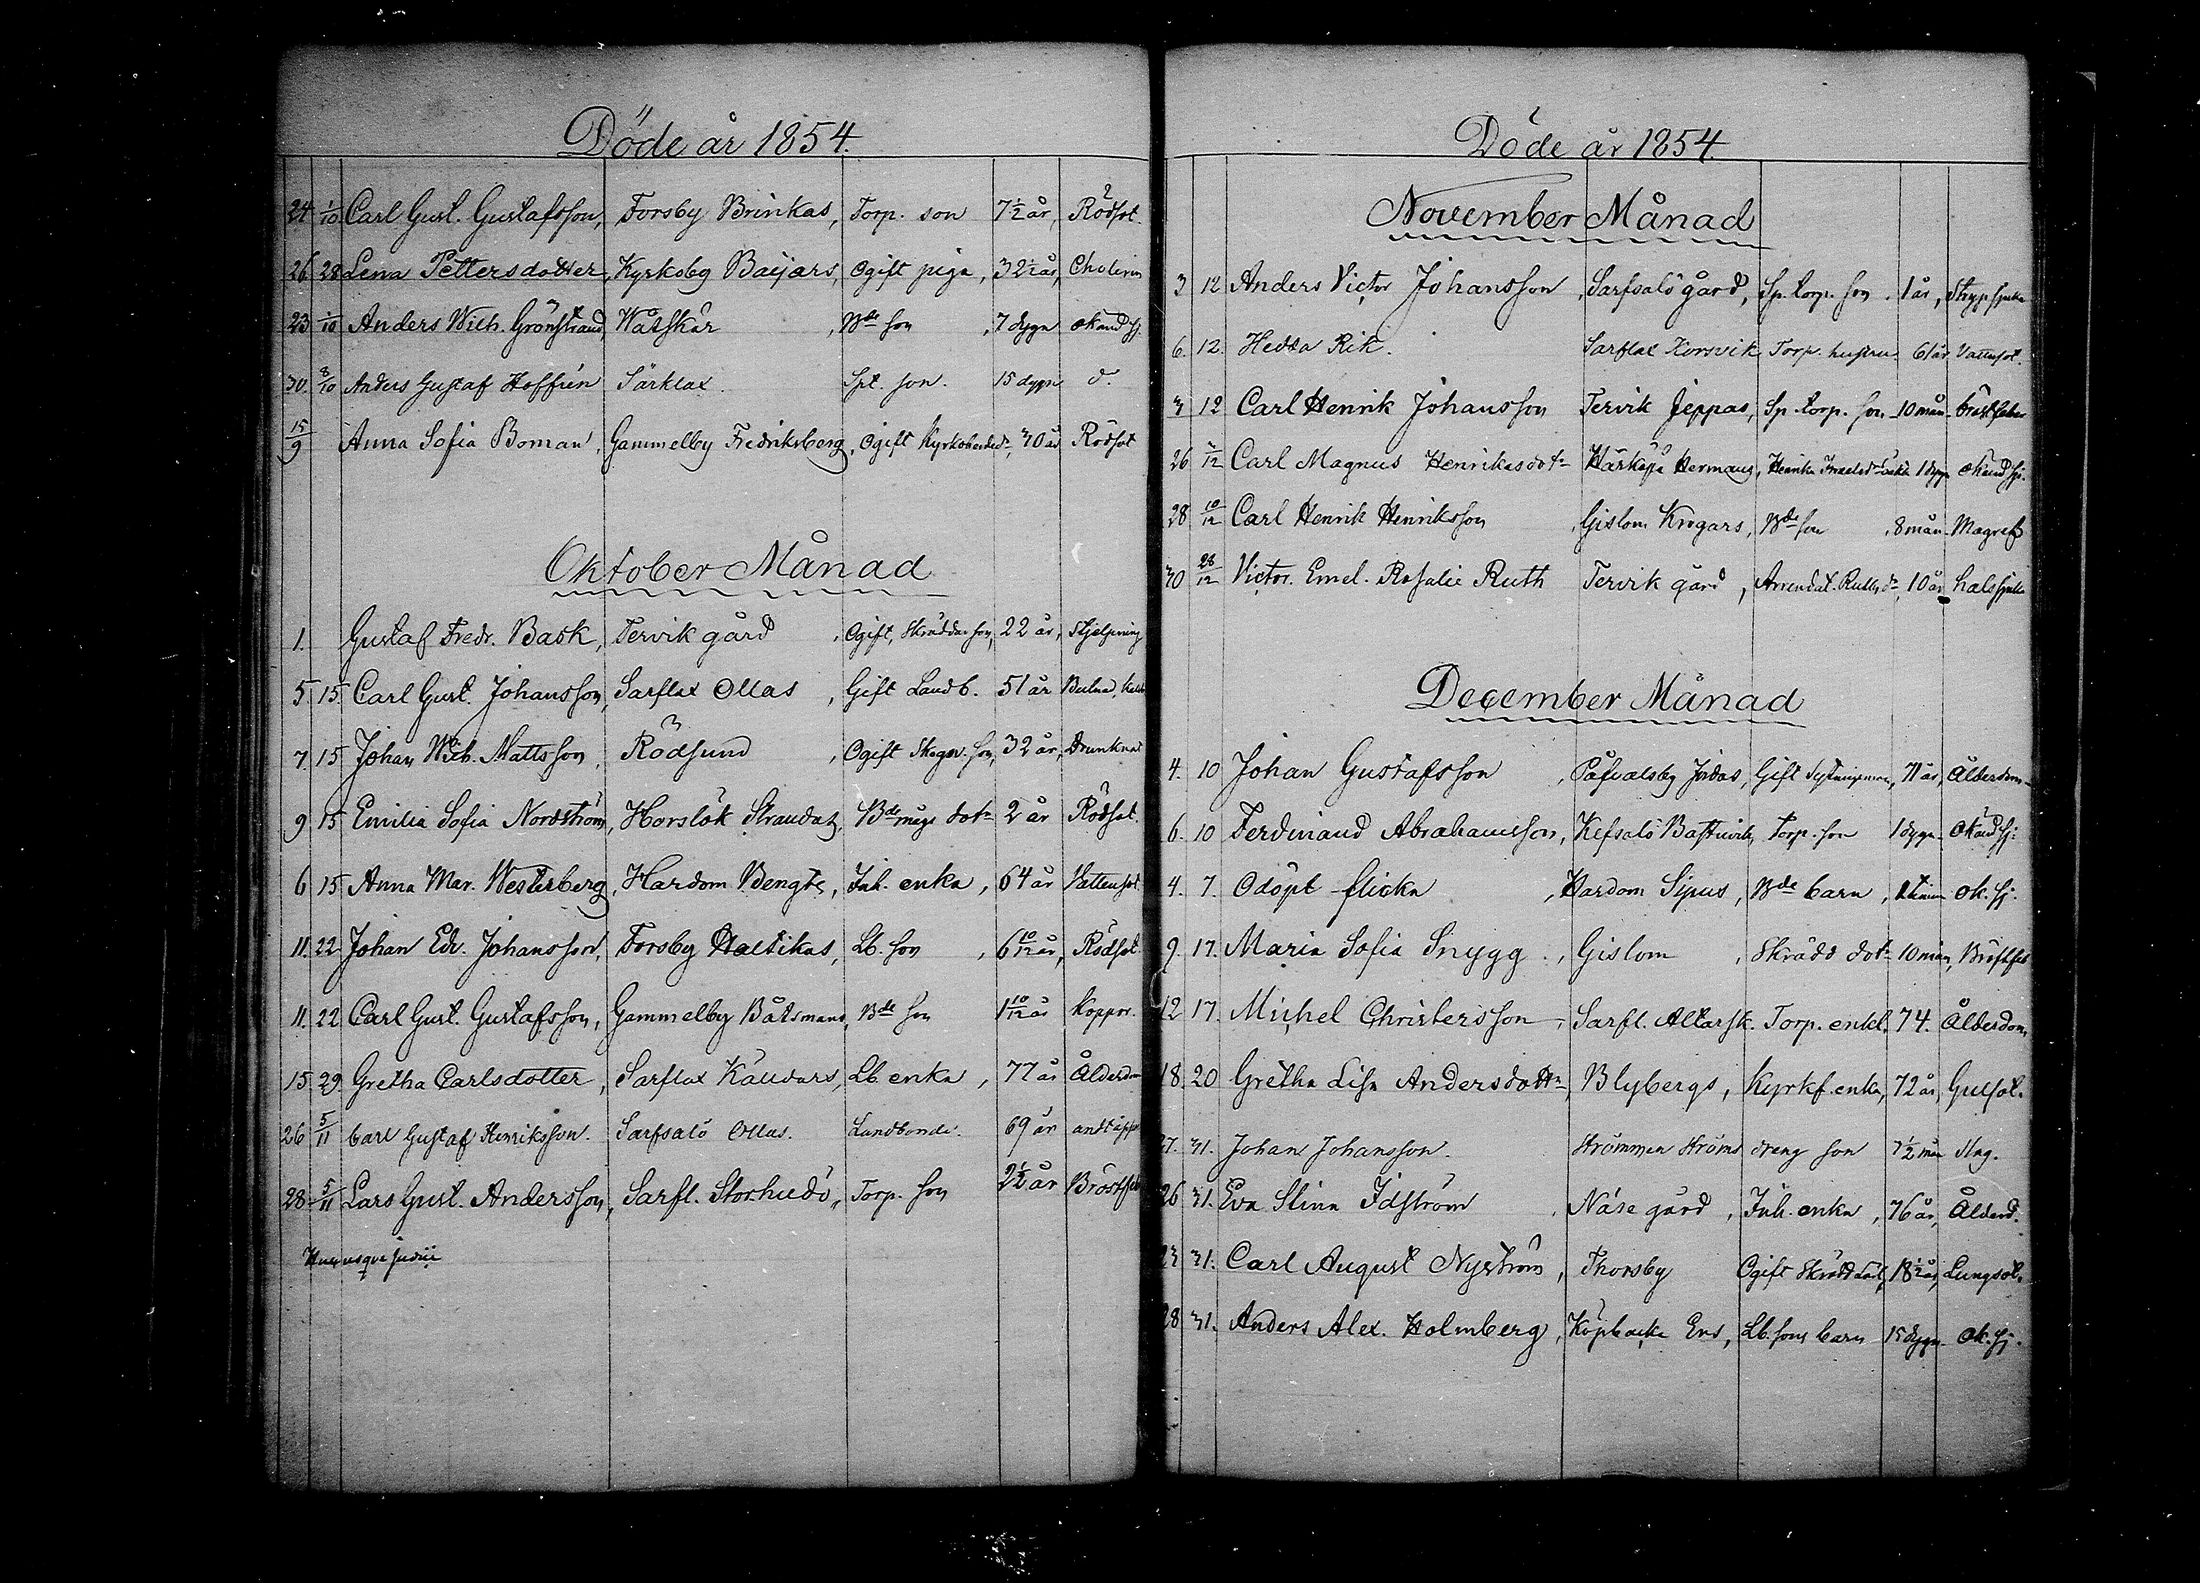 Döde år 1854.
24 1/10 Carl Gust. Gustafsson, Forsby Brinkas, Torp. son 7 1/2 år, Rödsot.
26 28 Lena Pettersdotter, Kyrkoby Baijars, Ogift piga, 32 1/2 år, Cholerin
23 1/10 Anders Wilh. Grönstrand, Våtskär, Bde son, 7 dygn okänd sj.
30. 8/10 Anders Gustaf Hoffrén Särklax. Spt. son. 15 dygn d.
15/9 Anna Sofia Boman, Gammelby Fredriksberg, Ogift 30 år Rödsot
Oktober Månad
1. Gustaf Fredr. Bask, Tervik gård, Ogift, Skräddar son, 22 år,
5. 15. Carl Gust. Johansson, Sarflax Ollas, Gift Landb. 51 år
7. 15 Johan Wilh. Mattsson, Rödsund, Ogift Skogv. son, 32 år, Drunknat
9 15 Emilia Sofia Nordström, Horslök Strandas, Bde mågs dotr 2 år Rödsot.
6 15 Anna Mar. Westerberg, Hardom Bengts, Inh. enka, 64 år Vattensot.
11. 22 Johan Edv. Johansson, Forsby Haltikas, Lb. son, 6 10/12 år, Rödsot
11. 22 Carl Gust. Gustafsson, Gammelby Båtsmans, Bde son 1 10/12 år Koppor.
15 29. Gretha Carlsdotter, Sarflax Käudars, Lb. enka, 77 år Ålderdom
26 5/11 Carl Gustaf Henriksson. Sarfsalö Ollas. Landbonde. 69 år andtäppa
28 5/11 Lars Gust. Andersson, Sarfl. Storhudö, Torp. son 2 1/2 år Bröstfeb
Hucusque
Döde år 1854.
November Månad
3 12 Anders Victor Johansson, Sarfsalö gård, Sp. torp. son. 1 år, Strypsjuka
6. 12. Hedda Rik. Sarflax Korsvik Torp. hustru. 61 år Vattusot.
3 12 Carl Henrik Johansson Tervik Jeppas, Sp. torp. son 10 mån. bröstfeber
26 3/12 Carl Magnus Henriksdotr Härkäpä Hermans, Henrika 1 dygn okänd sj.
28 10/12 Carl Henrik Henriksson, Gislom Krogars, Bde son, 8 mån Magref
30 28/12 Victor. Emel. Rosalie Ruth Tervik gård, Arrendat. Ruths dr, 10 år, halssjuka
December Månad
4. 10 Johan Gustafsson, Påfvalsby Jordas, Gift Sytningsman, 71 år, Ålderdom
6. 10 Ferdinand Abrahamsson, Kefsalö Bastuvik, Torp. son 1 dygn. Okänd sj:
4. 7. Odöpt flicka, Hardom Sipus, Bde barn, 1 timme ok. sj:
9. 17. Maria Sofia Snygg., Gislom, Skrädd dotr 10 mån, Bröstfeb
12 17. Michel Christersson, Sarfl. Altarsk. Torp. enkl. 74. Ålderdom,
18. 20 Gretha Lisa Andersdottr, Blybergs, Kyrkf. enka, 72 år, Gulsot.
27. 31. Johan Johansson. Strömmen Ströms dreng son 7 1/2 mån Slag.
26 31. Eva Stina Idström, Näse gård, Inh. enka, 76 år, Ålderd.
23 31. Carl August Nyström, Thorsby Ogift 18 1/2 år, Lungsot.
28 31. Anders Alex. Holmberg, Köpbacka Ers, Lb. sons barn 15 dygn ok. sj.